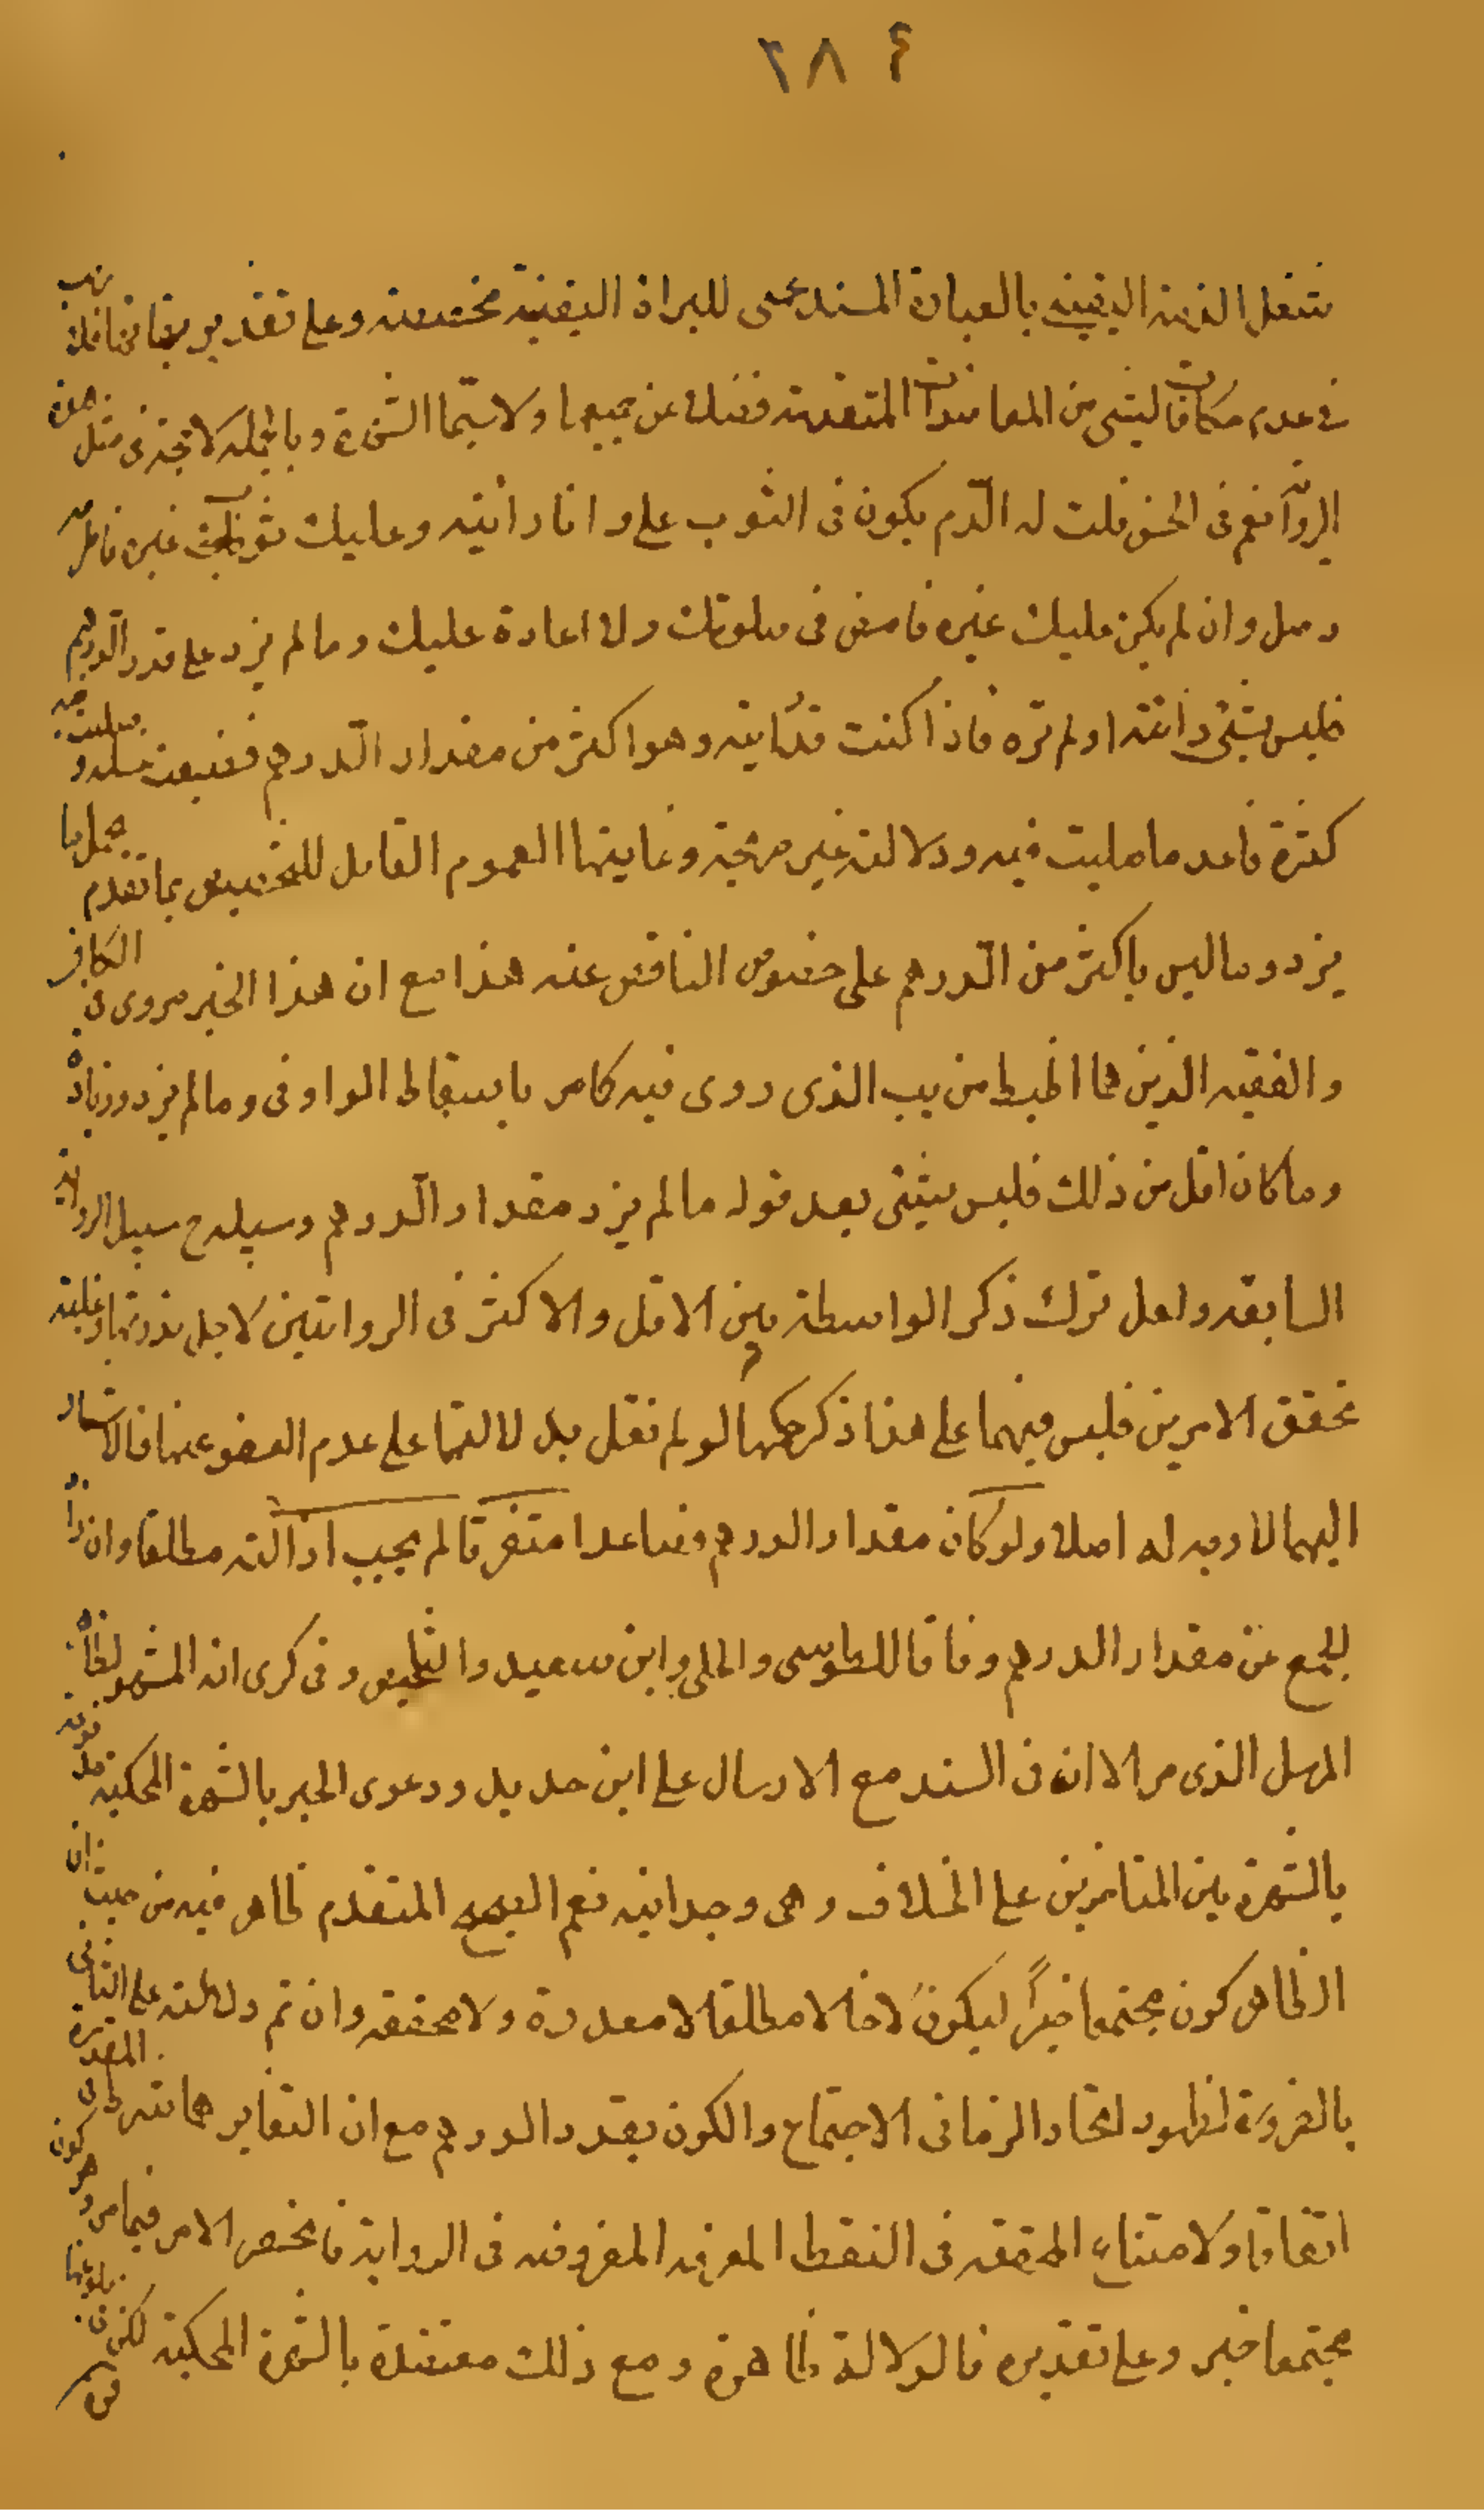 ٢٨٤
شغل الذمة اليقينى بالعبادة المستدعى للبراة اليقينية مخصصة وعلى تقدير بقائها فلا ريب
فى عدم مكافات لشئ من المعاضدات المتقدمة فضلا عن جميعها ولا سيما الشهرة وبالجملة لا تجترى مثل هذه
الرواية نعم فى الحسن قلت له الدم يكون فى الثوب على وانا فى وعليك ثوب غيره فاطرحه
وصل وان لم يكن عليك غيره فامض فى صلوتك ولا اعادة عليك وما لم يزد على قدر الدرهم
فليس بشئ رايته او لم تره فاذا كنت قد رايته وهو اكثر من مقدار الدرهم فضيعت غسله وصليت فيه صلوة
كثيرة فاعد ما صليت فيه ودلالته غير صريحة وغايتها العموم القابل للتخصيص بما تقدم بحمل ما لم
يزد وما ليس باكثر من الدرهم على خصوص الناقص عنه هذا مع ان هذا الخبر مروى فى الكافى
والفقيه الذين هما اضبط من يب الذى روى فيه كامر باسقاط الواو فى وما لم يزد وزيادة
وما كان اقل من ذلك فليس بشئ بعد قوله ما لم يزد مقدار الدرهم وسبيله ح سبيل الرواية
السابقة ولعل ترك ذكر الواسطة بين الاقل والاكثر فى الروايتين لاجل ندرتها وغلبة
تحقق الامرين فليس فيهما على هذا ذكر حكمها لو لم نقل بدلالتهما على عدم العفو عنها فالاستناد
اليهما لا وجه له اصلا ولو كان مقدار الدرهم وصاعدا متفرقا لم يجب ازالته مطلقا وان زاد
للجمع عن مقدار الدرهم وفاقا للطوسى والحلى وابن سعيد والتلخيص وفى كرى انه المشهور لظاهر
المرسل الذى مر الا ان فى السند مع الارسال على ابن حديد ودعوى الجبر بالشهرة المحكية
بالشهرة بين المتاخرين على الخلاف وهى وجدانية نعم الصحيح المتقدم ظاهر فيه من حيث ان
الظاهر كون مجتمعا خبرا ليكون لا حالا مطلقا لا مقدرة ولا محققة وان تم دلالته على الثانى
بالضرورة لظهور اتحاد الزمان فى الاجتماع والكون بقدر الدرهم مع ان التغاير هما شرط فى المقدرة
اتفاقا ولامتناع المحققة فى النقط المعرفة المفروضه فى الرواية فانحصر الامر فيما مر وهو كون
مجتمعا خبر وعلى تقديره فالدلالة ظاهرة ومع ذلك معتضدة بالشهرة المحكية لكن فى